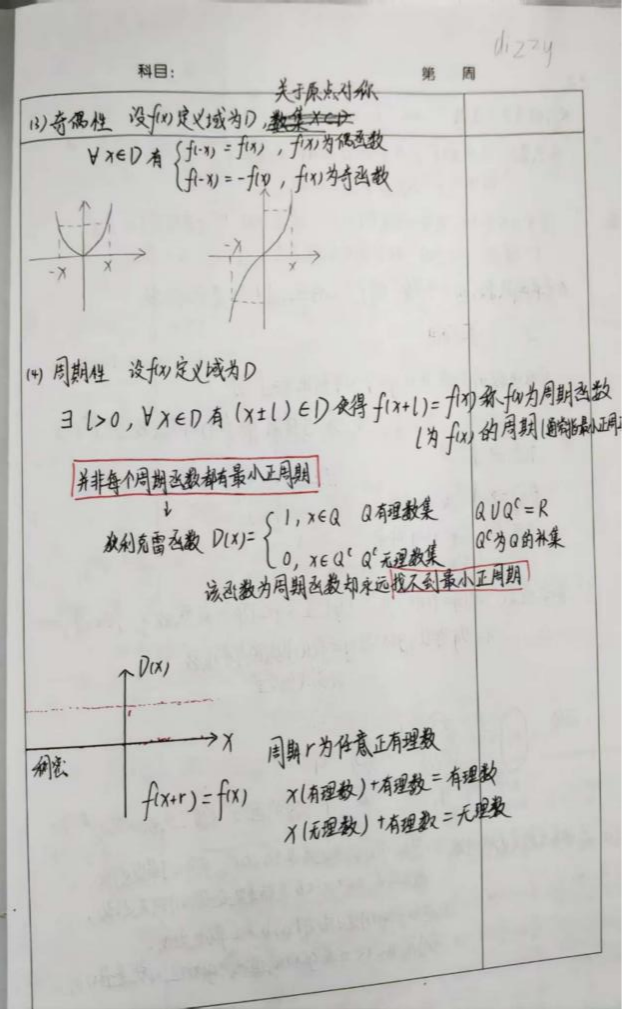 dizzy
科目: 第 周
关于原点对称
(3) 奇偶性 设f(x)定义域为D,
∀x∈D有 { f(-x) = f(x) , f(x)为偶函数
f(-x) = -f(x) , f(x)为奇函数
-x x
-x x
(4) 周期性 设f(x)定义域为D
∃ l>0, ∀x∈D有 (x±l)∈D 使得 f(x+l) = f(x) 称f(x)为周期函数
l为f(x)的周期(通常指最小正周
并非每个周期函数都有最小正周期
↓
狄利克雷函数 D(x)= { 1, x∈Q Q有理数集 Q∪Qᶜ=R
0, x∈Qᶜ Qᶜ无理数集 Qᶜ为Q的补集
该函数为周期函数却永远找不到最小正周期
D(x)
1
x
稠密
周期r为任意正有理数
f(x+r) = f(x) x(有理数)+有理数=有理数
x(无理数)+有理数=无理数